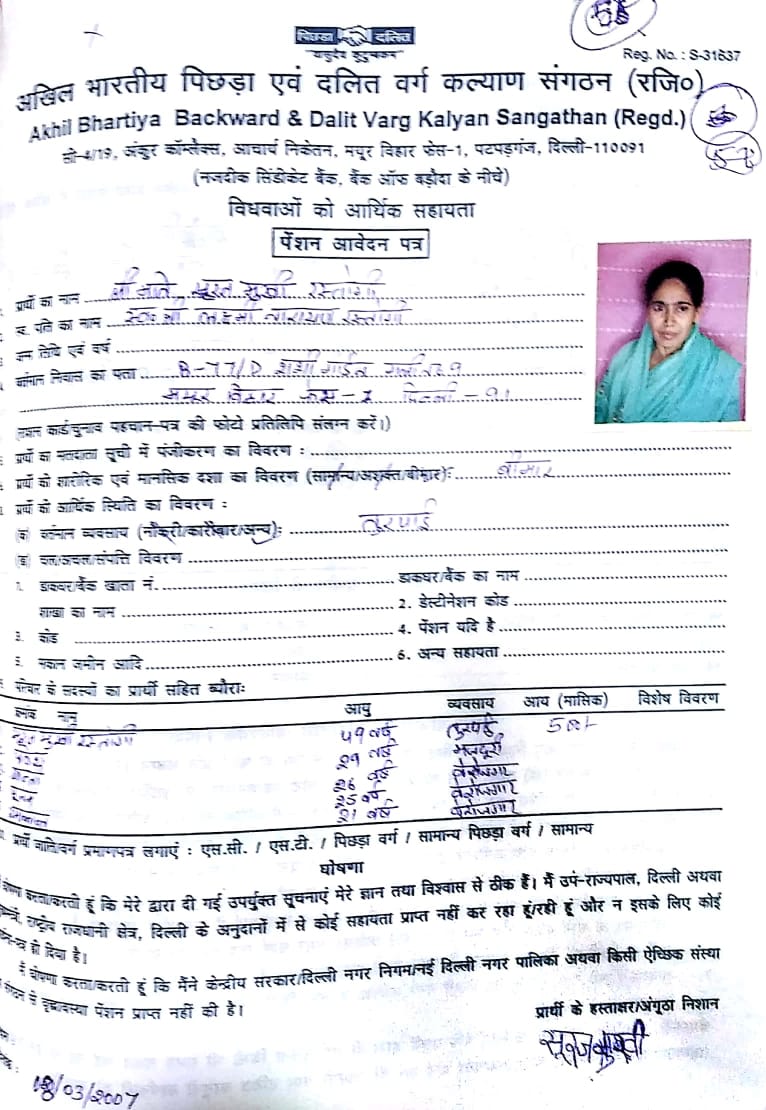 पिछड़ा दलित
"वसुदेव कुटुम्बकम"
Reg. No. : S-31637
अखिल भारतीय पिछड़ा एवं दलित वर्ग कल्याण संगठन (रजि०)
Akhil Bhartiya Backward & Dalit Varg Kalyan Sangathan (Regd.)
सी-4/19, अंकुर कॉम्लैक्स, आचार्य निकेतन, मयूर विहार फेस-1, पटपड़गंज, दिल्ली-110091
(नजदीक सिंडीकेट बैंक, बैंक ऑफ बड़ौदा के नीचे)
विधवाओं को आर्थिक सहायता
पेंशन आवेदन पत्र
प्रार्थी का नाम सूरज मुखी रस्तोगी
स्व. पति का नाम स्व० श्री लक्ष्मी नारायण रस्तोगी
तिथि एवं वर्ष
वर्तमान निवास का पता B-77/D शशी गार्डन गली
मयूर विहार फेस-I दिल्ली-91
(राशन कार्ड/चुनाव पहचान-पत्र की फोटो प्रतिलिपि संलग्न करें।)
प्रार्थी का मतदाता सूची में पंजीकरण का विवरण :
प्रार्थी की शारीरिक एवं मानसिक दशा का विवरण (सामान्य/अशक्त/बीमार): बीमार
प्रार्थी की आर्थिक स्थिति का विवरण :
(क) वर्तमान व्यवसाय (नौकरी/कारोबार/अन्य): तुरपाई
(ख) चल/अचल/संपत्ति विवरण
1. डाकघर/बैंक खाता नं. डाकघर/बैंक का नाम
शाखा का नाम 2. डेस्टीनेशन कोड
3. कोड 4. पेंशन यदि है
5. मकान जमीन आदि 6. अन्य सहायता
परिवार के सदस्यों का प्रार्थी सहित ब्यौराः
क्रमांक नाम आयु व्यवसाय आय (मासिक) विशेष विवरण
सूरज मुखी रस्तोगी 49 वर्ष तुरपाई
29 वर्ष मजदूरी
26 वर्ष बेरोजगार
25 वर्ष बेरोजगार
21 वर्ष बेरोजगार
प्रार्थी जाति/वर्ग प्रमाणपत्र लगाएं : एस.सी. / एस.टी. / पिछड़ा वर्ग / सामान्य पिछड़ा वर्ग / सामान्य
घोषणा
घोषणा करता/करती हूं कि मेरे द्वारा दी गई उपर्युक्त सूचनाएं मेरे ज्ञान तथा विश्वास से ठीक हैं। मैं उप-राज्यपाल, दिल्ली अथवा
राष्ट्रीय राजधानी क्षेत्र, दिल्ली के अनुदानों में से कोई सहायता प्राप्त नहीं कर रहा हूं/रही हूं और न इसके लिए कोई
ही दिया है।
मैं घोषणा करता/करती हूं कि मैंने केन्द्रीय सरकार/दिल्ली नगर निगम/नई दिल्ली नगर पालिका अथवा किसी ऐच्छिक संस्था
से वृद्धावस्था पेंशन प्राप्त नहीं की है।
प्रार्थी के हस्ताक्षर/अंगूठा निशान
सूरजमुखी
18/03/2007